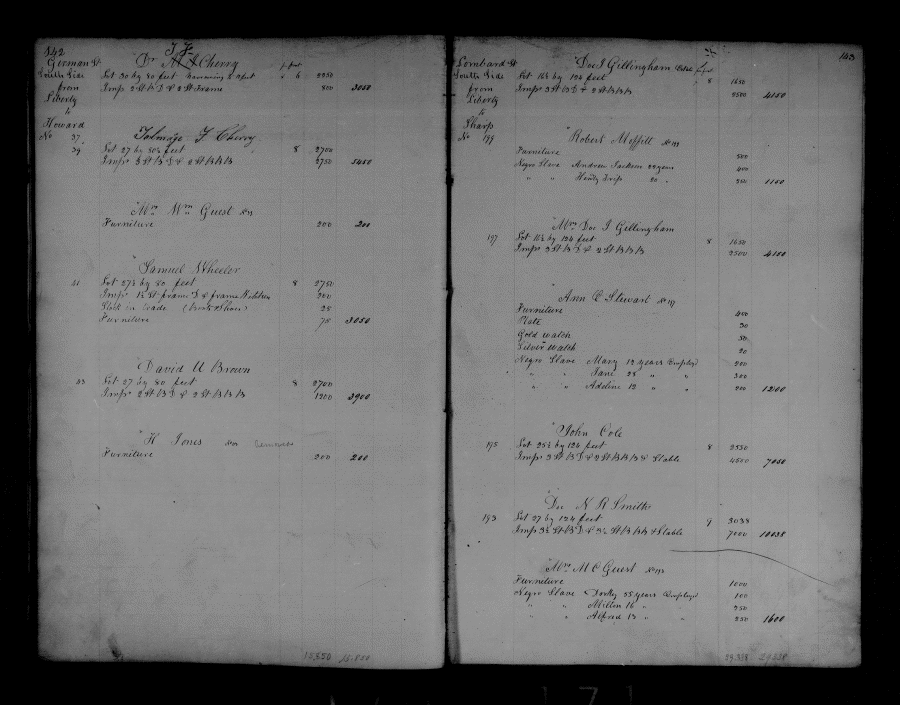 142
German St
South Side
from
Liberty
to
Howard
No 37
Dr M J Cherry
Lot 30 by 80 feet 2250
Imps 2 St B D & 2 St Frame 800 3050
Talmage F Cherry
39 Lot 27 by 80½ feet 8 2700
Imps 3 St B D & 2 St B B B 2750 5450
Mrs Wm Guest
Furniture 200 200
Samuel Wheeler
41 Lot 27½ by 80 feet 8 2750
Imps 1½ St frame D & frame Kitchen 200
Stock in trade (Boots & Shoes) 25
Furniture 75 3050
David U Brown
43 Lot 27 by 80 feet 8 2700
Imps 2 St B D & 2 St B B B 1200 3900
H Jones Removed
Furniture 200 200
15,850 15.850
143
Lombard St
South Side
from
Liberty
to
Sharp
No 199
Doc J Gillingham
Lot 16½ by 124 feet 8 1650
Imps 3 St B D & 2 St B B B 2500 4150
Robert Moffitt No 199
Furniture 500
Negro Slave Andrew Jackson 22 years 400
" " Henry 20 " 250 1150
Mrs Doc J Gillingham
197 Lot 16½ by 124 feet 8 1650
Imps 3 St B D & 2 St B B B 2500 4150
Ann C Stewart No 197
Furniture 400
Plate 30
Gold watch 50
Silver watch 20
Negro Slave Mary 19 years 200
" " Jane 25 " " 300
" " Adeline 12 " " 200 1200
John Cole
195 Lot 25½ by 124 feet 8 2550
Imps 3 St B D & 2 St B B B & Stable 4500 7050
Doc N R Smith
193 Lot 27 by 124 feet 9 3038
Imps 3½ St B D & 3½ St B B B & Stable 7000 10038
Mrs M C Guest No 193
Furniture 1000
Negro Slave Dorky 35 years 100
" " Milton 16 " 250
" " Alfred 13 " " 250 1600
29.338 29338